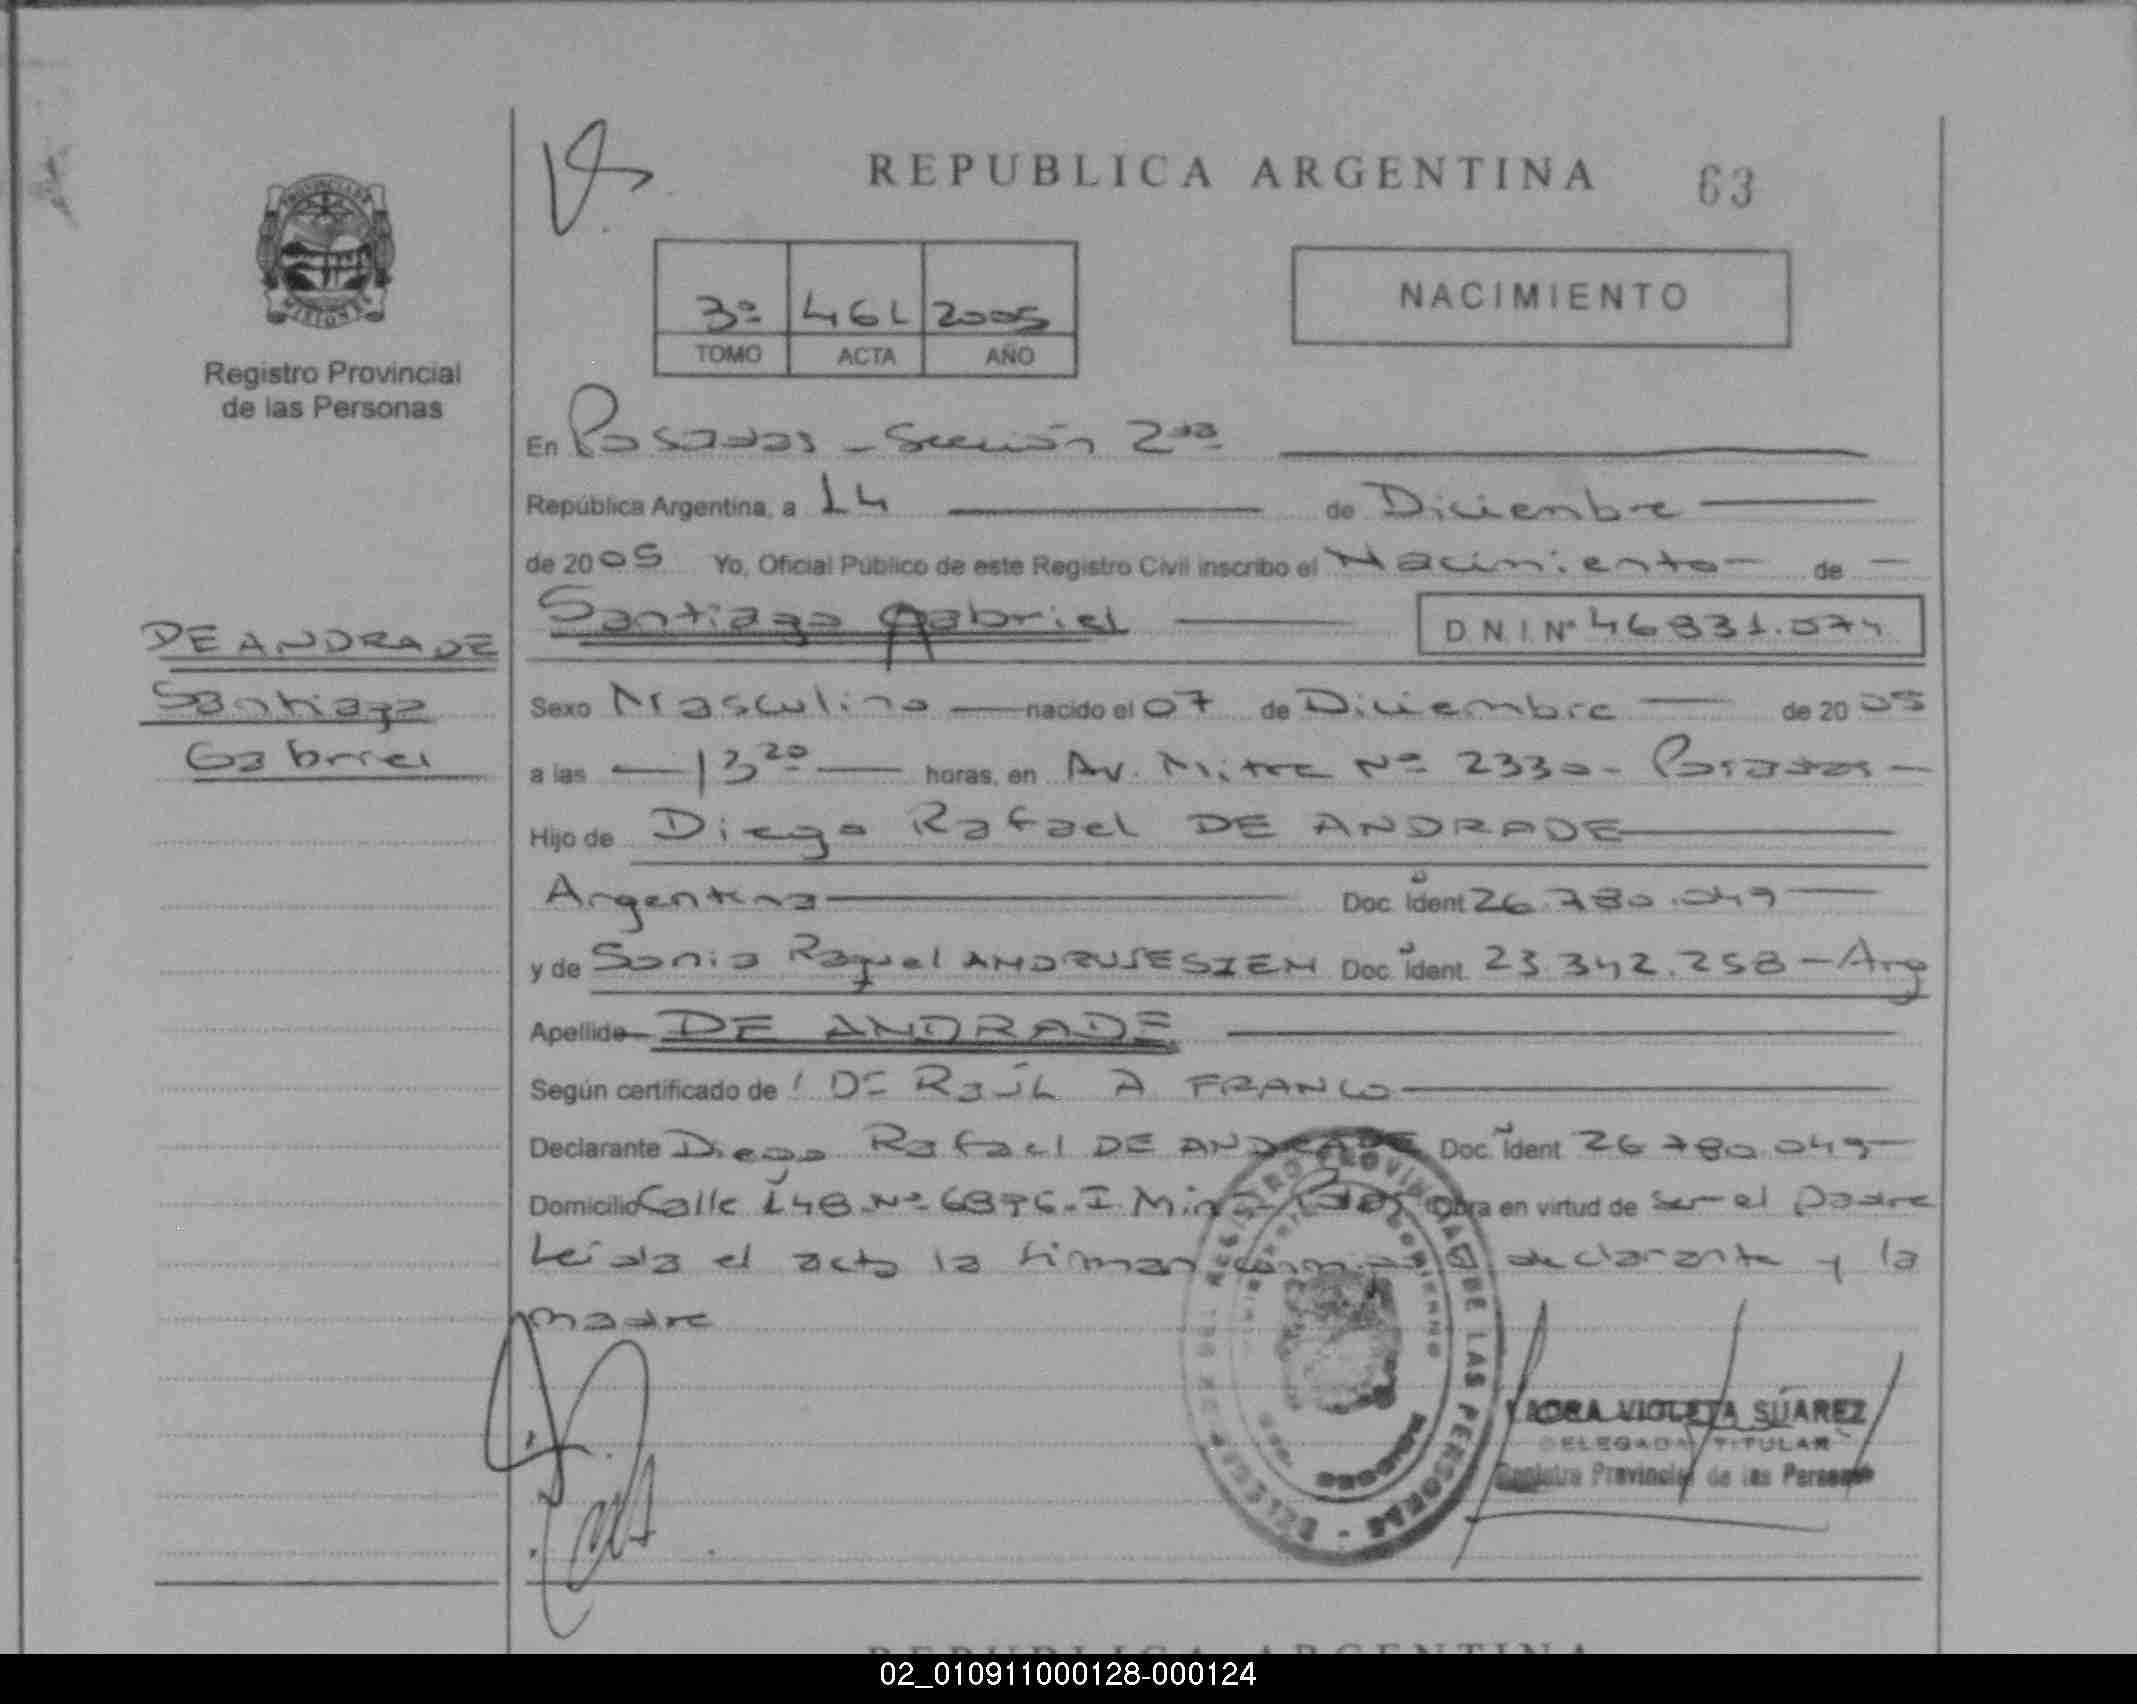 REPUBLICA ARGENTINA 63
PROVINCIA DE MISIONES
Registro Provincial
de las Personas
NACIMIENTO
3º 461 2005
TOMO ACTA AÑO
En Posadas - Sección 2da
República Argentina, a 14 de Diciembre
de 2005 Yo, Oficial Público de este Registro Civil inscribo el Nacimiento - de -
Santiago Gabriel D N I Nº 46.831.074
DE ANDRADE
Santiago
Gabriel
Sexo Masculino nacido el 07 de Diciembre de 2005
a las 13 20 horas, en Av. Mitre Nº 2330 - Posadas -
Hijo de Diego Rafael DE ANDRADE
Argentina Doc. Ident 26.780.049
y de Sonia Raquel Doc. Ident. 23.342.258 - Arg
Apellido DE ANDRADE
Según certificado de Raúl A FRANCO
Declarante Diego Rafael DE ANDRADE Doc. Ident 26.780.049
Domicilio Calle 148 Nº Obra en virtud de ser el padre
Leida el acta la firman declarante y la
madre
REGISTRO PROVINCIAL DE LAS PERSONAS
VIOLETA SUAREZ
DELEGADA TITULAR
Registro Provincial de las Personas
REPUBLICA ARGENTINA
02_010911000128-000124